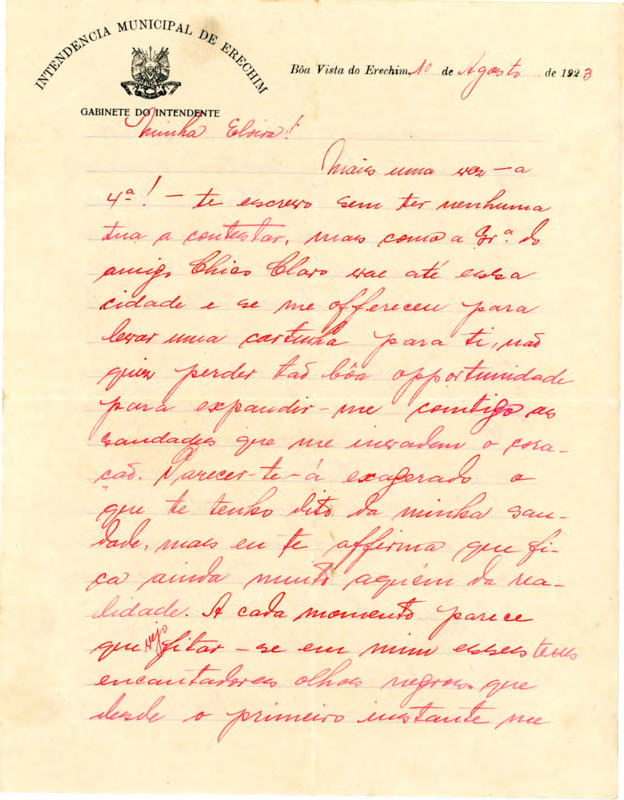 INTENDENCIA MUNICIPAL DE ERECHIM
GABINETE DO INTENDENTE
Bôa Vista do Erechim, 10 de Agosto de 1923
Minha Elvira!
Mais uma vez — a
4ª! — te escrevo sem ter nenhuma
tua a contestar, mais como a Srª. do
amigo Chico Claro vae até essa
cidade e se me offereceu para
levar uma cartinha para ti, não
quiz perder tão bôa opportunidade
para expandir-me comtigo as
saudades que me invadem o cora-
ção. Parecer-te-á exagerado o
que te tenho dito da minha sau-
dade, mais eu te affirmo que fi-
ca ainda muito aquém da rea-
lidade. A cada momento parece
que vejo fitar-se em mim esses teus
encantadores olhos negros que
desde o primeiro instante me